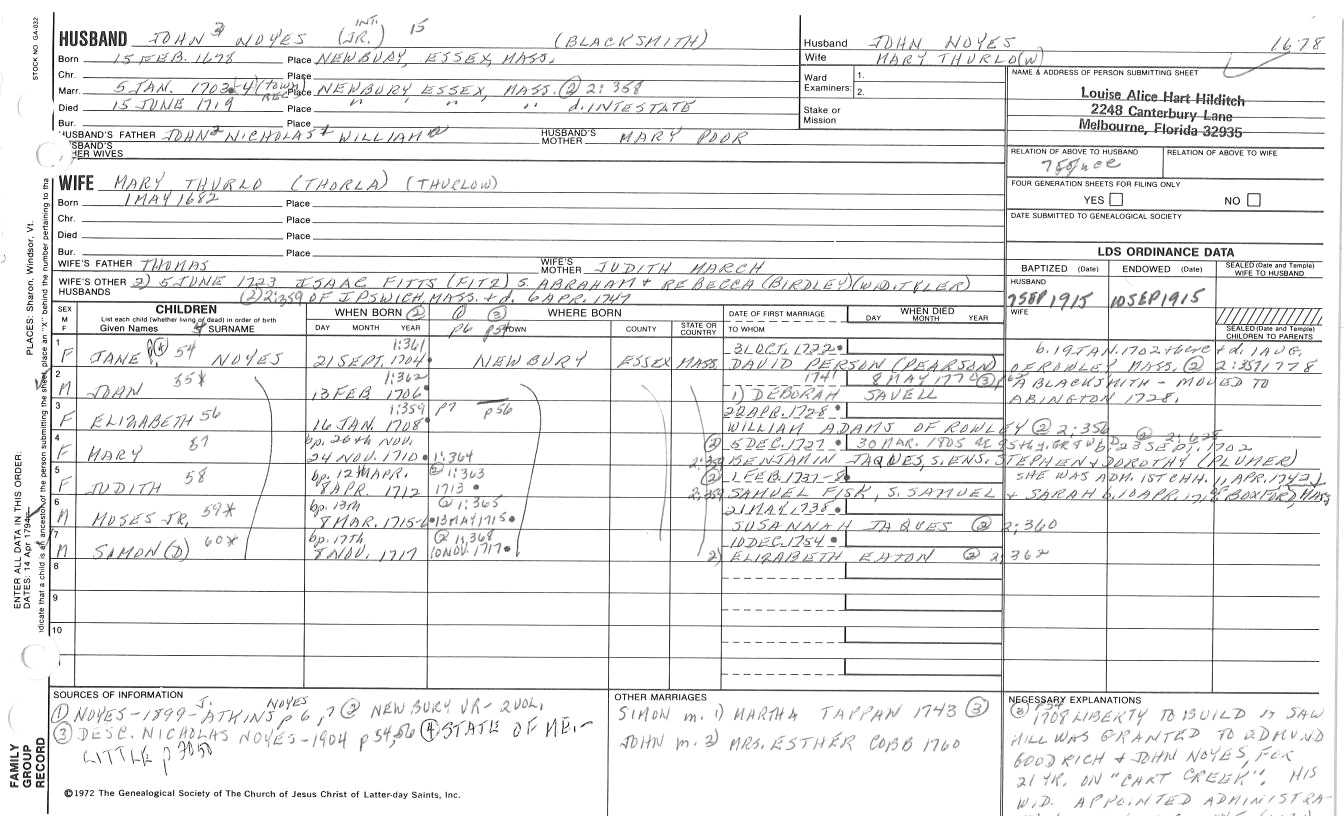 STOCK NO. GA-032
HUSBAND JOHN 3 NOYES INT. (JR.) 15 (BLACKSMITH)
Born 15 FEB. 1678 Place NEWBURY, ESSEX, MASS.
Chr. Place
Marr. 5 JAN. 1703-4 (TOWN REC) Place NEWBURY ESSEX, MASS. (2) 2:358
Died 15 JUNE 1719 Place " " " d. INTESTATE
Bur. Place
HUSBAND'S FATHER JOHN 2 NICHOLAS 1 WILLIAM HUSBAND'S MOTHER MARY POOR
HUSBAND'S OTHER WIVES
Husband JOHN NOYES 1678
Wife MARY THURLO(W)
Ward Examiners: 1. 2.
Stake or Mission
NAME & ADDRESS OF PERSON SUBMITTING SHEET
Louise Alice Hart Hilditch
2248 Canterbury Lane
Melbourne, Florida 32935
RELATION OF ABOVE TO HUSBAND RELATION OF ABOVE TO WIFE
FOUR GENERATION SHEETS FOR FILING ONLY
YES NO
DATE SUBMITTED TO GENEALOGICAL SOCIETY
WIFE MARY THURLO (THORLA) (THURLOW)
Born 1 MAY 1682 Place
Chr. Place
Died Place
Bur. Place
WIFE'S FATHER THOMAS WIFE'S MOTHER JUDITH MARCH
WIFE'S OTHER HUSBANDS 2) 5 JUNE 1723 ISAAC FITTS (FITZ) S. ABRAHAM + REBECCA (BIRDLEY) (WD. TYLER)
(2) 2:359 OF IPSWICH, MASS. + d. 6 APR. 1747
LDS ORDINANCE DATA
BAPTIZED (Date) ENDOWED (Date) SEALED (Date and Temple) WIFE TO HUSBAND
HUSBAND
7 SEP 1915 10 SEP 1915
WIFE
SEALED (Date and Temple) CHILDREN TO PARENTS
SEX M F
CHILDREN
List each child (whether living or dead) in order of birth
Given Names SURNAME
WHEN BORN (2)
DAY MONTH YEAR
WHERE BORN
(1) (3) p6 p54
TOWN COUNTY STATE OR COUNTRY
DATE OF FIRST MARRIAGE
TO WHOM
WHEN DIED
DAY MONTH YEAR
1 F JANE (4) 54 NOYES 1:361 21 SEPT. 1704 NEWBURY ESSEX MASS. 31 OCT. 1722
DAVID PERSON (PEARSON) b. 19 JAN. 1702 + d. 1 AUG. 1778 OF ROWLEY MASS. (2) 2:357
2 M JOHN 55* 1:362 13 FEB 1706 1741 8 MAY (3)
1) DEBORAH SAVELL A BLACKSMITH - MOVED TO ABINGTON 1728.
3 F ELIZABETH 56 1:359 16 JAN. 1708 p7 p56 22 APR. 1728
WILLIAM ADAMS OF ROWLEY (2) 2:356
4 F MARY 57 bp. 26th NOV. 24 NOV. 1710 1:364 (2) 5 DEC. 1727 30 MAR. 1805 b. 23 SEPT. 1702
BENJAMIN JAQUES, S. ENS. STEPHEN + DOROTHY (PLUMER)
5 F JUDITH 58 bp. 12th APR. 8 APR. 1712 1:363 1713 (2) 1 FEB. 1737-8 SHE WAS ADM. 1ST CHH. 11 APR. 1742
SAMUEL FISK, S. SAMUEL + SARAH b. 10 APR. OF BOXFORD, MASS
6 M MOSES JR. 59* bp. 13th 8 MAR. 1715-6 (2) 1:365 13 MAY 1715 21 MAY 1738
SUSANNAH JAQUES (2) 2:360
7 M SAMON(D) 60* bp. 17th 8 NOV. 1717 (2) 1:368 10 NOV. 1717 10 DEC. 1754
2) ELIZABETH EATON (2) 2:362
8
9
10
ENTER ALL DATA IN THIS ORDER:
DATES: 14 Apr 1794
PLACES: Sharon, Windsor, Vt.
FAMILY GROUP RECORD
SOURCES OF INFORMATION
(1) NOYES-1899-ATKINS p 6, 7 (2) NEWBURY VR-2 VOL.
(3) DESC. NICHOLAS NOYES-1904 p 54, 56 (4) STATE OF ME.-
LITTLE p
OTHER MARRIAGES
SIMON m. 1) MARTHA TAPPAN 1743 (3)
JOHN m. 2) MRS. ESTHER COBB 1760
NECESSARY EXPLANATIONS
(3) p54 1708 LIBERTY TO BUILD A SAW
MILL WAS GRANTED TO EDMUND
GOODRICH + JOHN NOYES, FOR
21 YR. ON "CART CREEK". HIS
WID. APPOINTED ADMINISTRA-
©1972 The Genealogical Society of The Church of Jesus Christ of Latter-day Saints, Inc.